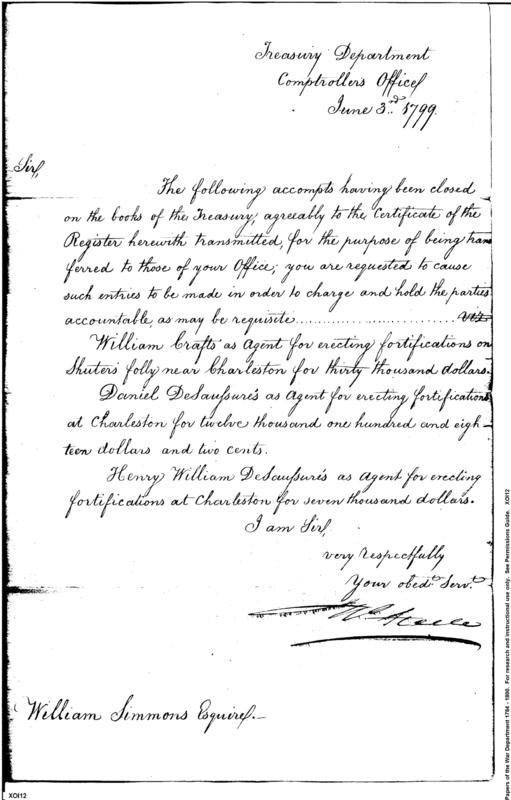 Treasury Department
Comptrollers Office
June 3rd 1799.
Sir,
The following accompts having been closed
on the books of the Treasury, agreeably to the Certificate of the
Register herewith transmitted, for the purpose of being tran
ferred to those of your Office; you are requested to cause
such entries to be made in order to charge and hold the parties
accountable, as may be requisite.......................... viz
William Crafts' as Agent for erecting fortifications on
Shutes folly near Charleston for thirty thousand dollars.
Daniel DeSaussure's as Agent for erecting fortifications
at Charleston for twelve thousand one hundred and eigh-
teen dollars and two cents.
Henry William DeSaussure's as agent for erecting
fortifications at Charleston for seven thousand dollars.
I am Sir,
very respectfully
Your obedt. Servt.
Steele
William Simmons Esquire.-
XOI12
Papers of the War Department 1784 - 1800. For research and instructional use only. See Permissions Guide. XOI12